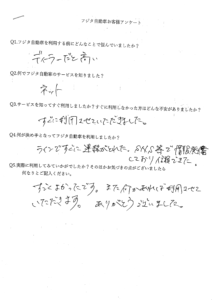 フジタ自動車お客様アンケート
Q1.フジタ自動車を利用する前にどんなことで悩んでいましたか？
ディーラーだと高い
Q2.何でフジタ自動車のサービスを知りましたか？
ネット
Q3.サービスを知ってすぐに利用しましたか？すぐに利用しなかった方はどんな不安がありましたか？
すぐに利用させていただきました。
Q4.何が決め手となってフジタ自動車を利用しましたか？
ラインですぐに連絡がとれた。
しており信頼できた。
Q5.実際に利用してみていかがでしたか？そのほかお気づきの点がございましたら
何なりとご記入ください。
すごくよかったです。また何かあれば利用させて
いただきます。ありがとうございました。